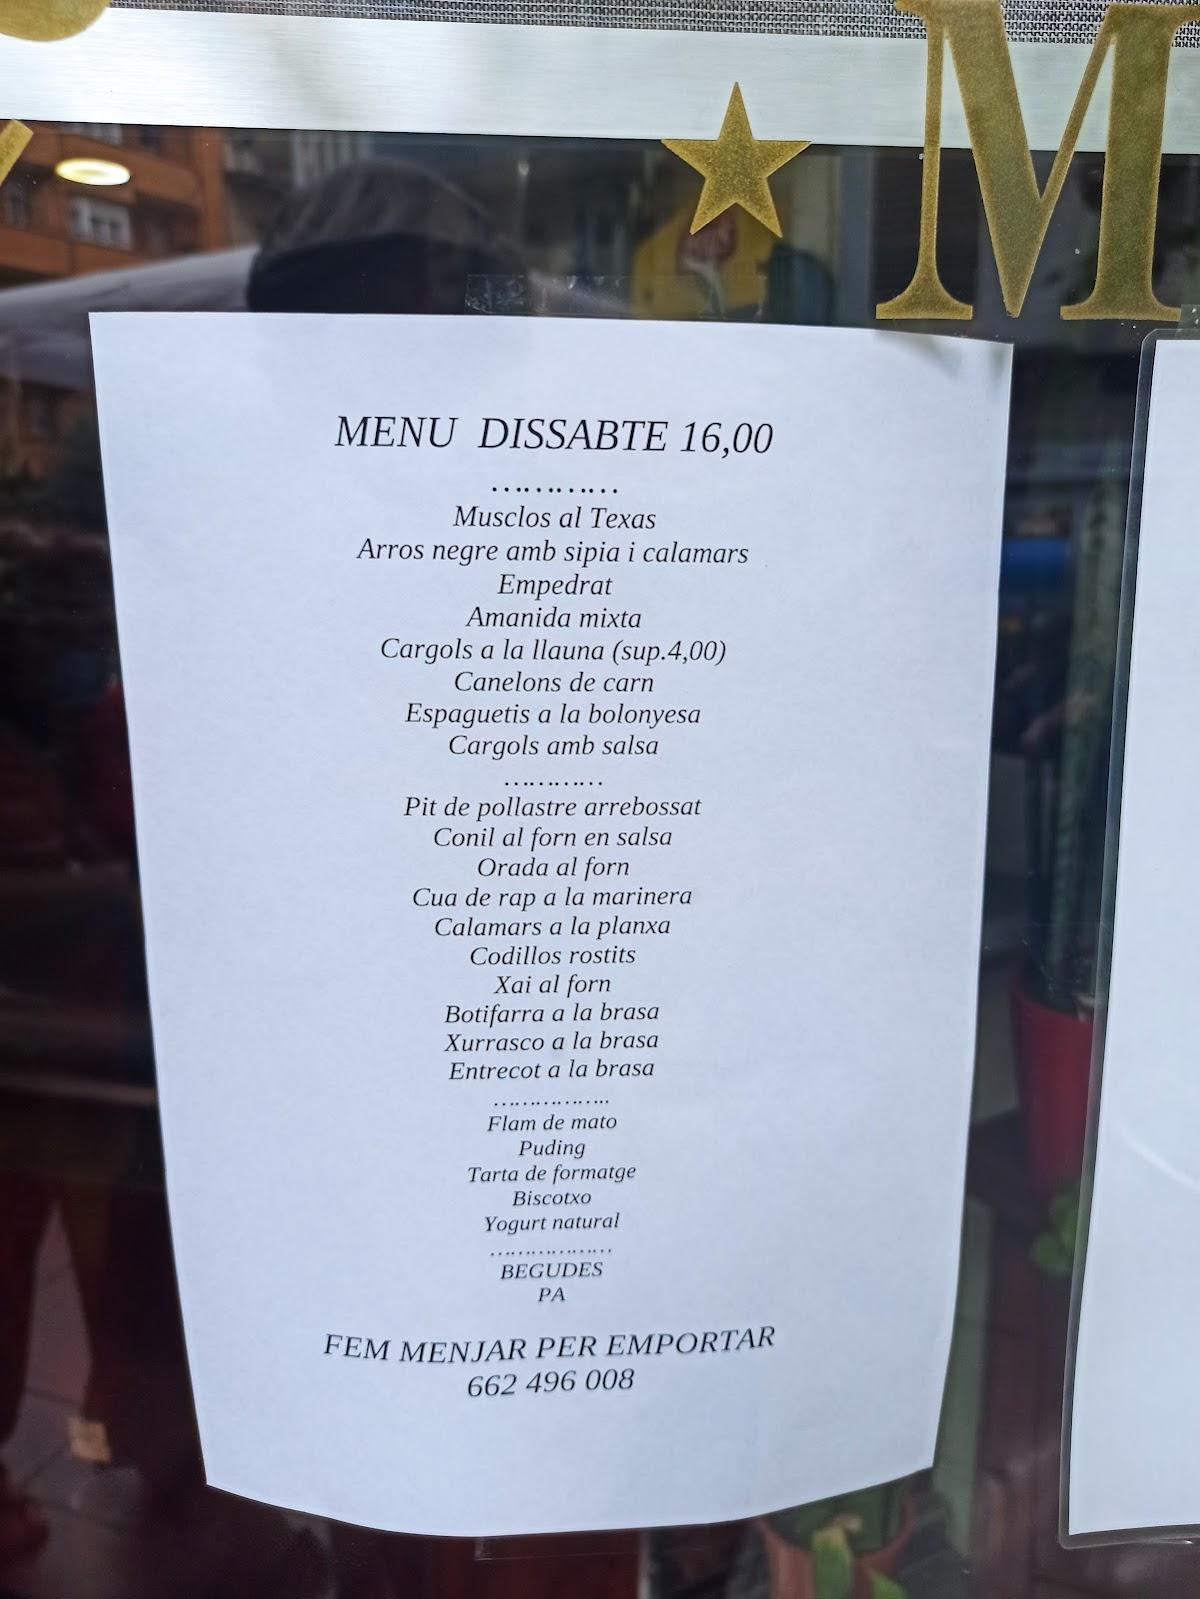 M
MENU DISSABTE 16,00
…………
Musclos al Texas
Arros negre amb sipia i calamars
Empedrat
Amanida mixta
Cargols a la llauna (sup.4,00)
Canelons de carn
Espaguetis a la bolonyesa
Cargols amb salsa
…………
Pit de pollastre arrebossat
Conil al forn en salsa
Orada al forn
Cua de rap a la marinera
Calamars a la planxa
Codillos rostits
Xai al forn
Botifarra a la brasa
Xurrasco a la brasa
Entrecot a la brasa
……………..
Flam de mato
Puding
Tarta de formatge
Biscotxo
Yogurt natural
………………
BEGUDES
PA
FEM MENJAR PER EMPORTAR
662 496 008